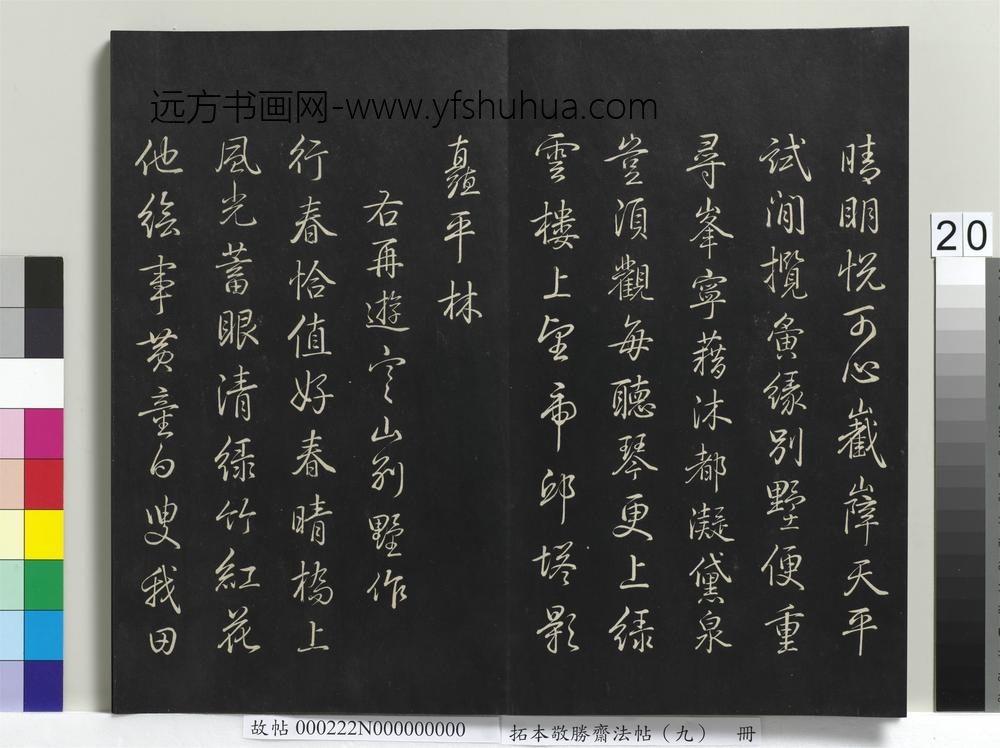 远方书画网-www.yfshuhua.com
晴明悦可心巀嶭天平
試澗攬夤緣别墅便重
尋峯寧藉沐都凝黛泉
豈須觀每聽琴更上緑
雲樓上望虎邱塔影
矗平林
右再遊寒山别墅作
行春恰值好春晴橋上
風光蓄眼清緑竹紅花
他繪事黄童白叟我田
20
故帖 000222N000000000
拓本敬勝齋法帖（九） 冊